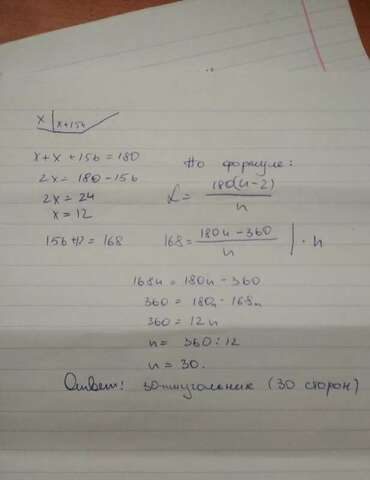 x x+156
x+x+156=180
2x = 180-156
2x = 24
x = 12
156+12=168
По формуле:
α = 180(n-2)/n
168 = 180n-360/n | · n
168n = 180n-360
360 = 180n-168n
360 = 12n
n = 360:12
n = 30.
Ответ: 30-тиугольник (30 сторон)